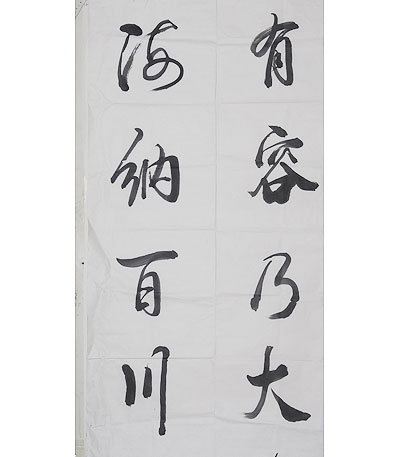 有容乃大
海纳百川